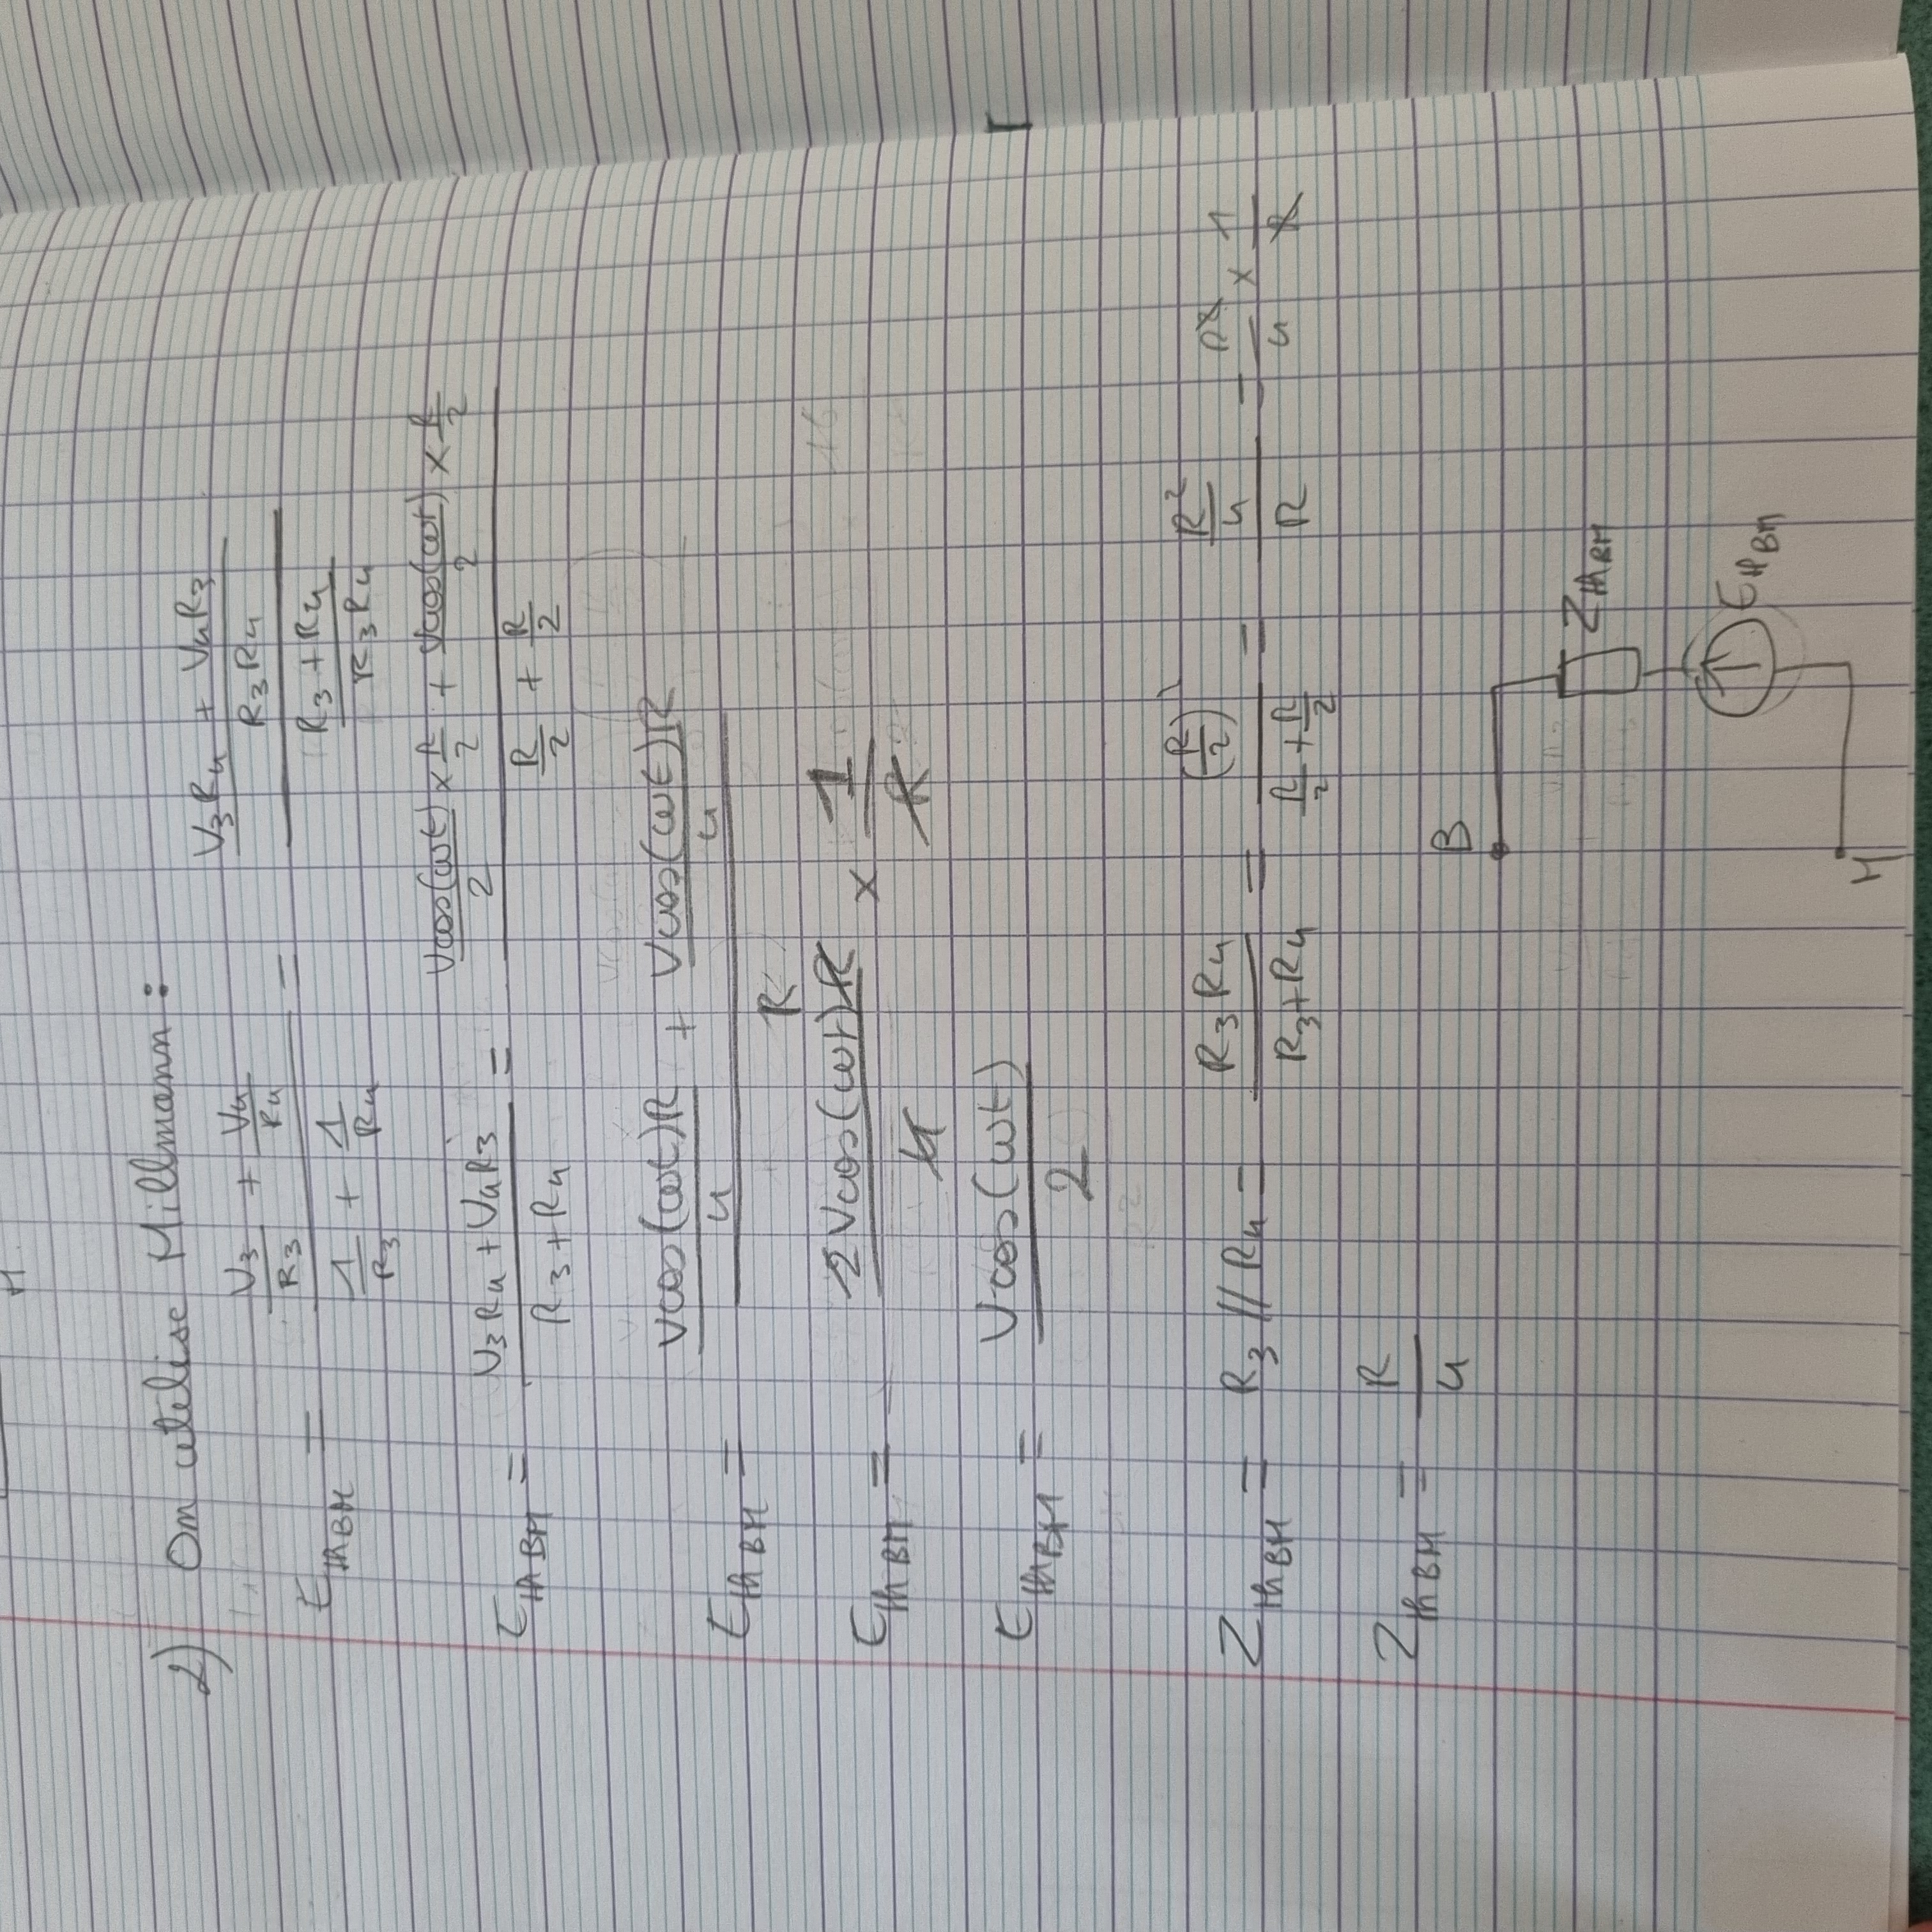 M
2) On utilise Millmann :
E_thBM = (V₃/R₃ + V₄/R₄) / (1/R₃ + 1/R₄) = ((V₃R₄ + V₄R₃)/(R₃R₄)) / ((R₃+R₄)/(R₃R₄))
E_thBM = (V₃R₄ + V₄R₃)/(R₃+R₄) = (Vcos(ωt)/2 × R/2 + Vcos(ωt)/2 × R/2) / (R/2 + R/2)
E_thBM = (Vcos(ωt)R/4 + Vcos(ωt)R/4) / R
E_thBM = 2Vcos(ωt)R/4 × 1/R
E_thBM = Vcos(ωt)/2
Z_thBM = R₃//R₄ = R₃R₄/(R₃+R₄) = (R/2)²/(R/2 + R/2) = (R²/4)/R = R²/4 × 1/R
Z_thBM = R/4
B
Z_thBM
E_thBM
M